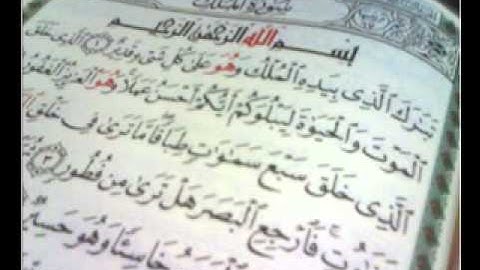 سورة الملك
بسم الله الرحمن الرحيم
تبرك الذي بيده الملك وهو على كل شيء قدير ١ الذي خلق
الموت والحيوة ليبلوكم ايكم احسن عملا وهو العزيز الغفور
الذي خلق سبع سموت طباقا ما ترى في خلق
فارجع البصر هل ترى من فطور ٣
خاسئا وهو حسير